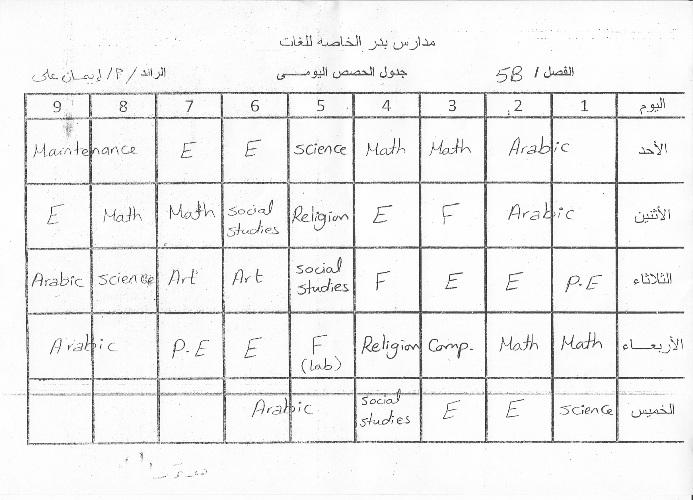 مدارس بدر الخاصه للغات
الفصل / 5B جدول الحصص اليومـــى الرائد / م / إيمان على
اليوم 1 2 3 4 5 6 7 8 9
الأحد Arabic Math Math science E E Maintenance
الأثنين Arabic F E Religion social studies Math Math E
الثلاثاء P.E E E F social studies Art Art science Arabic
الأربعـــاء Math Math Comp. Religion F (lab) E P.E Arabic
الخميس science E E social studies Arabic